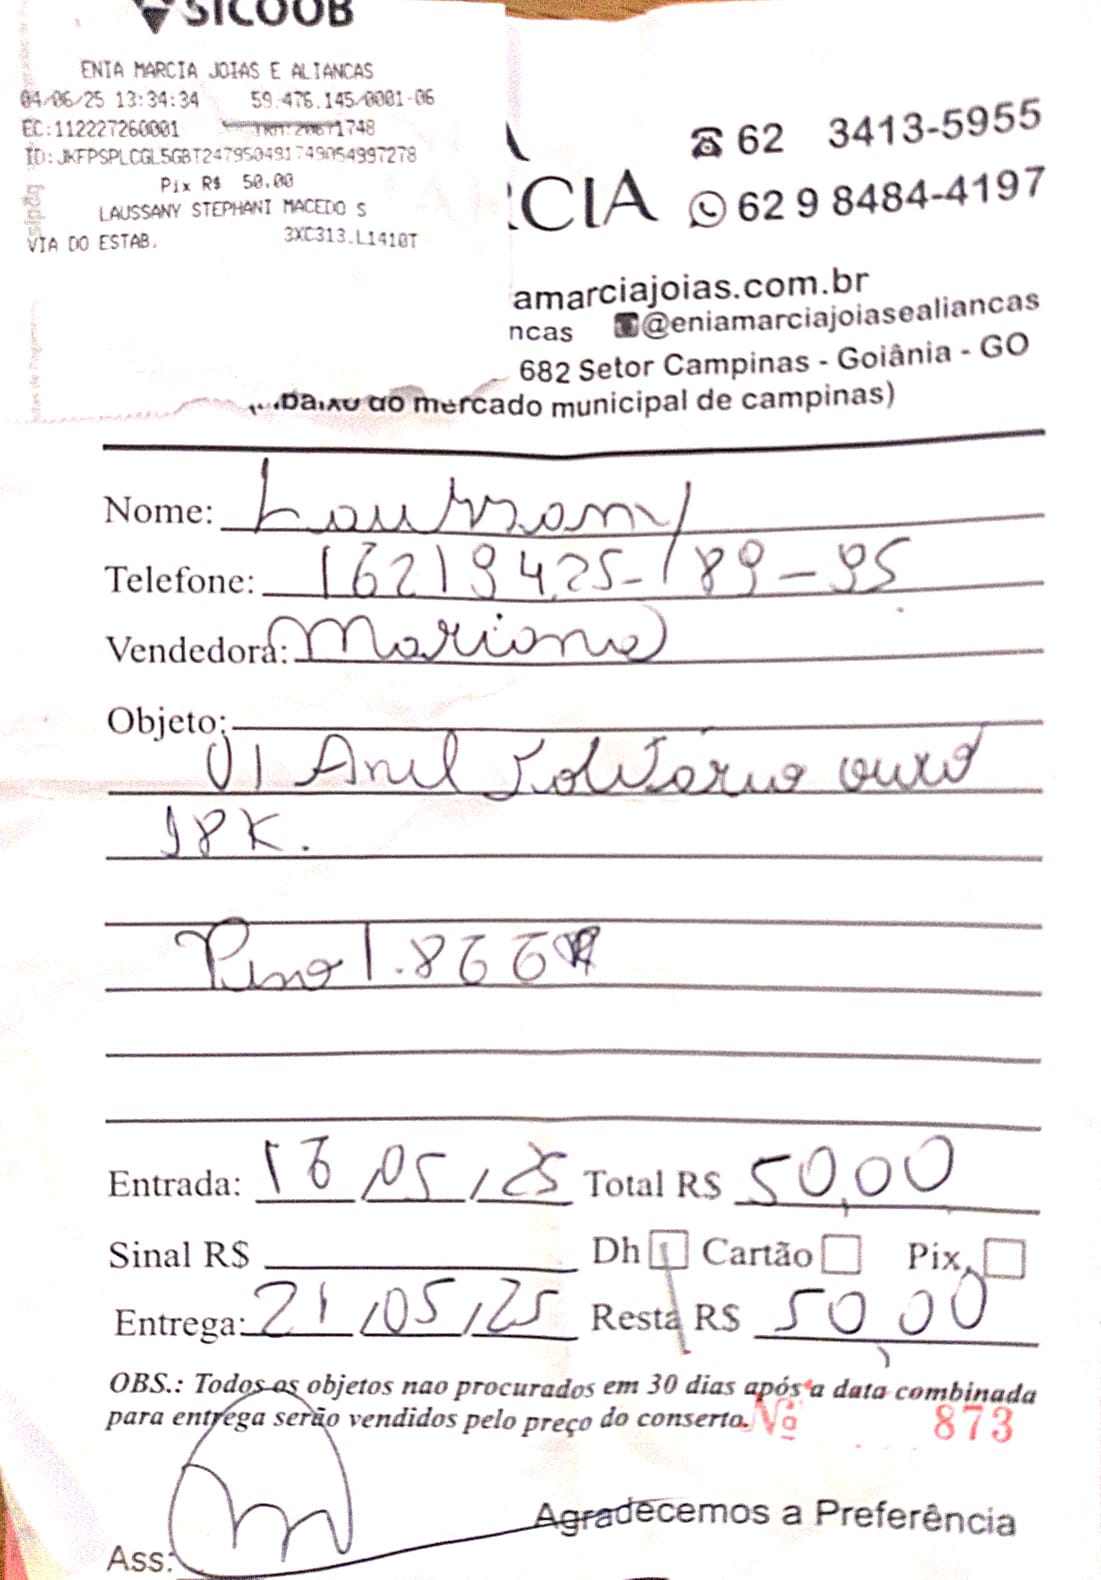 SICOOB
ENIA MARCIA JOIAS E ALIANCAS
04/06/25 13:34:34 59.476.145/0001-06
EC:112227260001 1748
ID:JKFPSPLCGL5GBT247950491749054997278
Pix R$ 50.00
LAUSSANY STEPHANI MACEDO S
VIA DO ESTAB. 3XC313.L1410T
62 3413-5955
CIA 62 9 8484-4197
amarciajoias.com.br
ncas @eniamarciajoiasealiancas
682 Setor Campinas - Goiânia - GO
baixo do mercado municipal de campinas)
Nome: Laussany
Telefone: (62) 9425-189-95
Vendedora: Mariana
Objeto:
01 Anel Solitário ouro
18K.
Peso 1.866
Entrada: 16/05/25 Total R$ 50,00
Sinal R$ Dh Cartão Pix
Entrega: 21/05/25 Resta R$ 50,00
OBS.: Todos os objetos nao procurados em 30 dias após a data combinada
para entrega serão vendidos pelo preço do conserto. Nº 873
Agradecemos a Preferência
Ass: